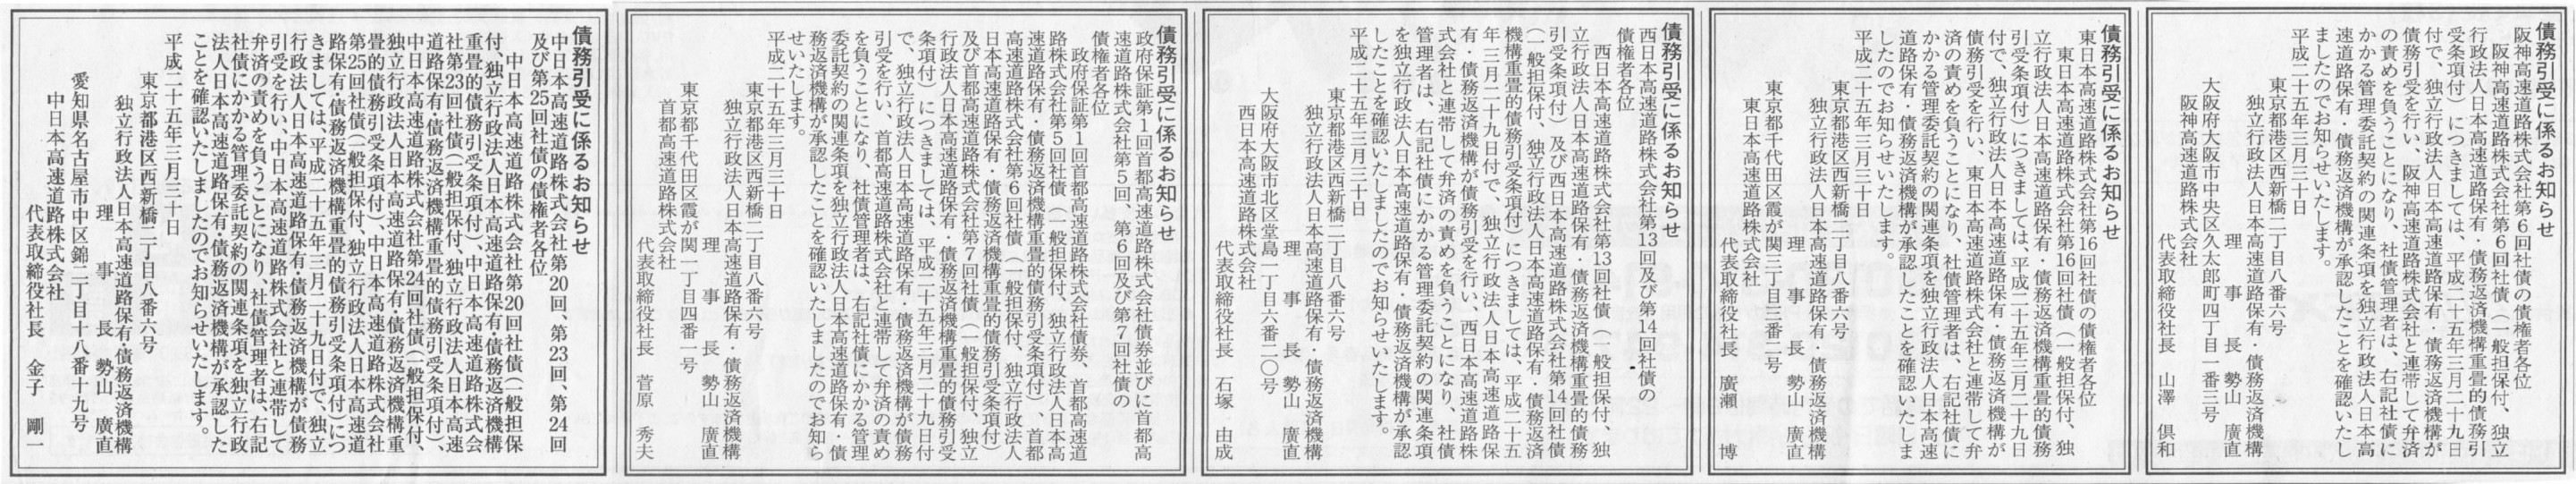 債務引受に係るお知らせ
阪神高速道路株式会社第6回社債の債権者各位
阪神高速道路株式会社第6回社債（一般担保付、独立
行政法人日本高速道路保有・債務返済機構重畳的債務引
受条項付）につきましては、平成二十五年三月二十九日
付で、独立行政法人日本高速道路保有・債務返済機構が
債務引受を行い、阪神高速道路株式会社と連帯して弁済
の責めを負うことになり、社債管理者は、右記社債に
かかる管理委託契約の関連条項を独立行政法人日本高
速道路保有・債務返済機構が承認したことを確認いたし
ましたのでお知らせいたします。
平成二十五年三月三十日
東京都港区西新橋二丁目八番六号
独立行政法人日本高速道路保有・債務返済機構
理事長 勢山 廣直
大阪府大阪市中央区久太郎町四丁目一番三号
阪神高速道路株式会社
代表取締役社長 山澤 倶和
債務引受に係るお知らせ
東日本高速道路株式会社第16回社債の債権者各位
東日本高速道路株式会社第16回社債（一般担保付、独
立行政法人日本高速道路保有・債務返済機構重畳的債務
引受条項付）につきましては、平成二十五年三月二十九日
付で、独立行政法人日本高速道路保有・債務返済機構が
債務引受を行い、東日本高速道路株式会社と連帯して弁
済の責めを負うことになり、社債管理者は、右記社債に
かかる管理委託契約の関連条項を独立行政法人日本高速
道路保有・債務返済機構が承認したことを確認いたしま
したのでお知らせいたします。
平成二十五年三月三十日
東京都港区西新橋二丁目八番六号
独立行政法人日本高速道路保有・債務返済機構
理事長 勢山 廣直
東京都千代田区霞が関三丁目三番二号
東日本高速道路株式会社
代表取締役社長 廣瀬 博
債務引受に係るお知らせ
西日本高速道路株式会社第13回及び第14回社債の
債権者各位
西日本高速道路株式会社第13回社債（一般担保付、独
立行政法人日本高速道路保有・債務返済機構重畳的債務
引受条項付）及び西日本高速道路株式会社第14回社債
（一般担保付、独立行政法人日本高速道路保有・債務返済
機構重畳的債務引受条項付）につきましては、平成二十五
年三月二十九日付で、独立行政法人日本高速道路保
有・債務返済機構が債務引受を行い、西日本高速道路株
式会社と連帯して弁済の責めを負うことになり、社債
管理者は、右記社債にかかる管理委託契約の関連条項
を独立行政法人日本高速道路保有・債務返済機構が承認
したことを確認いたしましたのでお知らせいたします。
平成二十五年三月三十日
東京都港区西新橋二丁目八番六号
独立行政法人日本高速道路保有・債務返済機構
理事長 勢山 廣直
大阪府大阪市北区堂島一丁目六番二〇号
西日本高速道路株式会社
代表取締役社長 石塚 由成
債務引受に係るお知らせ
政府保証第1回首都高速道路株式会社債券並びに首都高
速道路株式会社第5回、第6回及び第7回社債の
債権者各位
政府保証第1回首都高速道路株式会社債券、首都高速道
路株式会社第5回社債（一般担保付、独立行政法人日本高
速道路保有・債務返済機構重畳的債務引受条項付）、首都
高速道路株式会社第6回社債（一般担保付、独立行政法人
日本高速道路保有・債務返済機構重畳的債務引受条項付）
及び首都高速道路株式会社第7回社債（一般担保付、独立
行政法人日本高速道路保有・債務返済機構重畳的債務引受
条項付）につきましては、平成二十五年三月二十九日付
で、独立行政法人日本高速道路保有・債務返済機構が債務
引受を行い、首都高速道路株式会社と連帯して弁済の責め
を負うことになり、社債管理者は、右記社債にかかる管理
委託契約の関連条項を独立行政法人日本高速道路保有・債
務返済機構が承認したことを確認いたしましたのでお知ら
せいたします。
平成二十五年三月三十日
東京都港区西新橋二丁目八番六号
独立行政法人日本高速道路保有・債務返済機構
理事長 勢山 廣直
東京都千代田区霞が関一丁目四番一号
首都高速道路株式会社
代表取締役社長 菅原 秀夫
債務引受に係るお知らせ
中日本高速道路株式会社第20回、第23回、第24回
及び第25回社債の債権者各位
中日本高速道路株式会社第20回社債（一般担保
付、独立行政法人日本高速道路保有・債務返済機構
重畳的債務引受条項付）、中日本高速道路株式会
社第23回社債（一般担保付、独立行政法人日本高速
道路保有・債務返済機構重畳的債務引受条項付）、
中日本高速道路株式会社第24回社債（一般担保付、
独立行政法人日本高速道路保有・債務返済機構重
畳的債務引受条項付）、中日本高速道路株式会社
第25回社債（一般担保付、独立行政法人日本高速道
路保有・債務返済機構重畳的債務引受条項付）につ
きましては、平成二十五年三月二十九日付で、独立
行政法人日本高速道路保有・債務返済機構が債務
引受を行い、中日本高速道路株式会社と連帯して
弁済の責めを負うことになり、社債管理者は、右記
社債にかかる管理委託契約の関連条項を独立行政
法人日本高速道路保有・債務返済機構が承認した
ことを確認いたしましたのでお知らせいたします。
平成二十五年三月三十日
東京都港区西新橋二丁目八番六号
独立行政法人日本高速道路保有・債務返済機構
理事長 勢山 廣直
愛知県名古屋市中区錦二丁目十八番十九号
中日本高速道路株式会社
代表取締役社長 金子 剛一